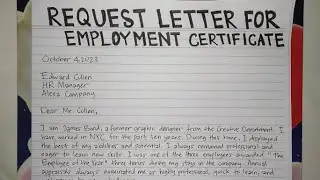 REQUEST LETTER FOR
EMPLOYMENT CERTIFICATE
October 4, 2023
Edward Cullen
HR Manager
Alexa Company
Dear Mr. Cullen,
I am James Bund, a former graphic designer from the Creative Department. I
have worked in NYC for the past ten years. During this time, I displayed
the best of my abilities and potential. I always remained professional and
eager to learn new skills. I was one of the three employees awarded " The
Employee of the Year" three times during my stay in the company. Annual
appraisals always nominated me as highly professional, quick to learn, and